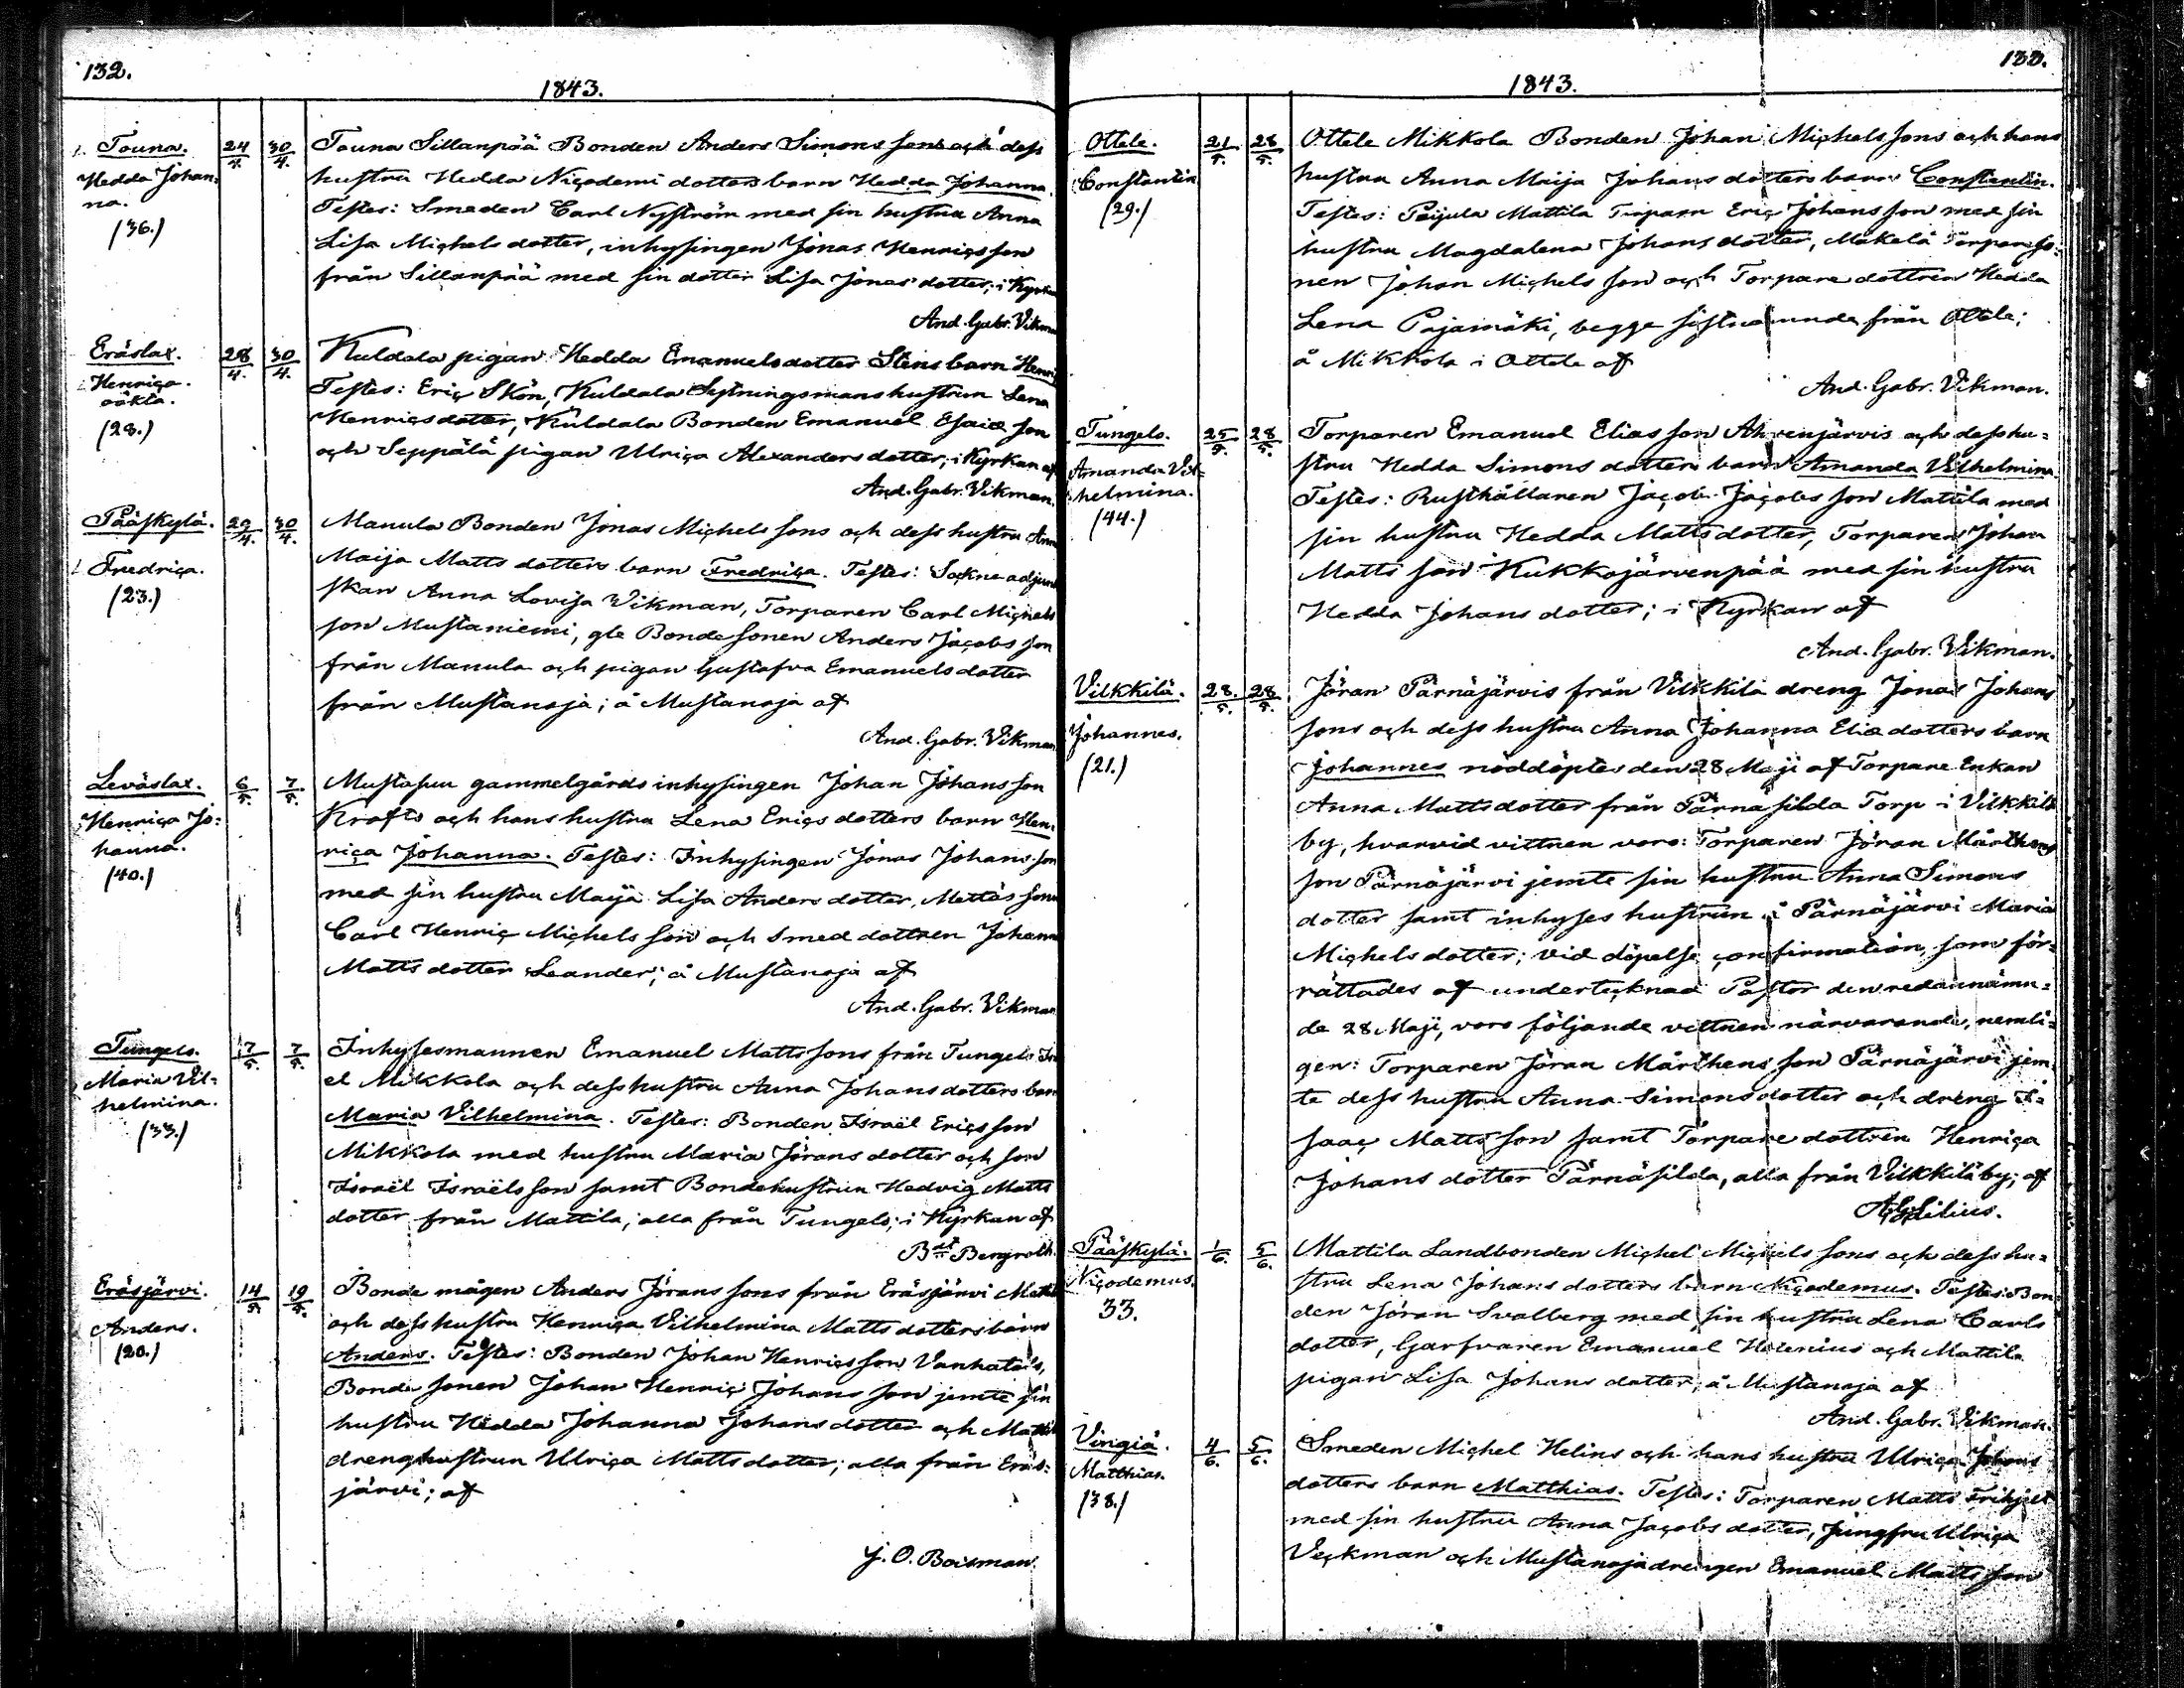 132.
1843.
Touna.
Hedda Johan-
na.
(36.)
24/4.
30/4.
Touna Sillanpää Bonden Anders Simons sons och dess
hustru Hedda Niçodemi dotters barn Hedda Johanna.
Testes: Smeden Carl Nyström med sin hustru Anna
Lisa Miçhels dotter, inhysingen Jonas Henriçs son
från Sillanpää med sin dotter Lisa Jonas dotter; i Kyrkan
And. Gabr. Vikman
Eräslax.
Henriça.
oäkta.
(28.)
28/4.
30/4.
Kuldala pigan Hedda Emanuelsdotter Stens barn Henri
Testes: Eriç Skön, Kuldala Sytningsmans hustrun Lena
Henriçs dotter, Kuldala Bonden Emanuel Esaiæ son
och Seppälä pigan Ulriça Alexanders dotter; i Kyrkan af
And. Gabr. Vikman.
Pääskylä.
Fredriça.
(23.)
29/4.
30/4.
Manula Bonden Jonas Miçhels sons och dess hustru Anna
Maija Matts dotters barn Fredriça. Testes: Soçkne adjunc
skan Anna Lovisa Vikman, Torparen Carl Miçhels
son Mustaniemi, gle Bonde sonen Anders Jaçobs son
från Manula och pigan Gustafva Emanuels dotter
från Mustanoja; å Mustanoja af
And. Gabr. Vikman
Leväslax.
Henriça Jo-
hanna.
(40.)
6/5.
7/5.
Mustasuu gammelgårds inhysingen Johan Johans son
Krafts och hans hustru Lena Eriçs dotters barn Hen-
riça Johanna. Testes: Inhysingen Jonas Johans son
med sin hustru Maija Lisa Anders dotter, Mattas sonen
Carl Henriç Miçhels son och Smed dottren Johanna
Matts dotter Leander; å Mustanoja af
And. Gabr. Vikman
Tungelo.
Maria Vil-
helmina.
(33.)
7/5.
7/5.
Inhysesmannen Emanuel Matts sons från Tungelo Isra
el Mikkola och dess hustru Anna Johans dotters barn
Maria Vilhelmina. Testes: Bonden Israël Eriçs son
Mikkola med hustru Maria Jörans dotter och son
Israël Israëls son samt Bondehustrun Hedvig Matts
dotter från Mattila; alla från Tungelo; i Kyrkan af
Bst Bergroth.
Eräsjärvi.
Anders.
(20.)
14/5.
19/5.
Bonde mågen Anders Jörans sons från Eräsjärvi Mattila
och dess hustru Henriça Vilhelmina Matts dotters barn
Anders. Testes: Bonden Johan Henriçs son Vanhatalo,
Bonde sonen Johan Henriç Johans son jemte sin
hustru Hedda Johanna Johans dotter och Mattila
dreng hustrun Ulriça Matts dotter; alla från Eräs-
järvi; af
J. O. Boisman.
133.
1843.
Ottele.
Constantin
(29.)
21/5.
28/5.
Ottele Mikkola Bonden Johan Miçhels sons och hans
hustru Anna Maija Johans dotters barn Constantin.
Testes: Paijula Mattila Torparn Eriç Johans son med sin
hustru Magdalena Johans dotter, Mäkelä Torpare so-
nen Johan Miçhels son och Torpare dottren Hedda
Lena Pajamäki, begge sistnämnde från Ottele;
å Mikkola i Ottele af
And. Gabr. Vikman.
Tungelo.
Amanda Vil-
helmina.
(44.)
25/5.
28/5.
Torparen Emanuel Elias son Ahvenjärvis och dess hu-
stru Hedda Simons dotters barn Amanda Vilhelmina.
Testes: Rusthållaren Jaçob Jaçobs son Mattila med
sin hustru Hedda Matts dotter, Torparen Johan
Matts son Kukkojärvenpää med sin hustru
Hedda Johans dotter; i Kyrkan af
And. Gabr. Vikman.
Vilkkilä.
Johannes.
(21.)
28./5.
28/5.
Jöran Pärnäjärvis från Vilkkilä dreng Jonas Johans
sons och dess hustru Anna Johanna Eliæ dotters barn
Johannes nöddöptes den 28 Maji af Torpare Enkan
Anna Matts dotter från Pärnäsilda Torp i Vilkkilä
by, hvarvid vittnen voro: Torparen Jöran Mårthens
son Pärnäjärvi jemte sin hustru Anna Simons
dotter samt inhyses hustrun i Pärnäjärvi Maria
Miçhels dotter; vid döpelse çonfirmation, som för-
rättades af underteçknad Pastor den redannämn-
de 28 Maji, voro följande vittnen närvarande, nemli-
gen: Torparen Jöran Mårthens son Pärnäjärvi jem
te dess hustru Anna Simonsdotter och dreng I-
saaç Matts son samt Torpare dottren Henriça
Johans dotter Pärnäsilda, alla från Vilkkilä by; af
A G Lilius.
Pääskylä.
Niçodemus.
33.
1/6.
5/6.
Mattila Landbonden Miçhel Miçhels sons och dess hu-
stru Lena Johans dotters barn Niçodemus. Testes: Bon-
den Jöran Svalberg med sin hustru Lena Carls
dotter, Garfvaren Emanuel Helenius och Mattila
pigan Lisa Johans dotter; å Mustanoja af
And. Gabr. Vikman.
Vingiä.
Matthias.
(38.)
4/6.
5/6.
Smeden Miçhel Helins och hans hustru Ulriça Johans
dotters barn Matthias. Testes: Torparen Matts
med sin hustru Anna Jaçobs dotter, Jungfru Ulriça
Veçkman och Mustanojadrengen Emanuel Matts son